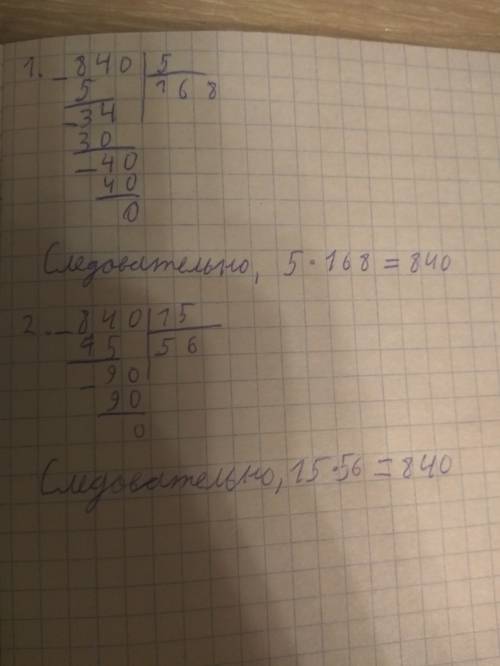 1. - 840 | 5
5 | 168
- 34
30
- 40
40
0
Следовательно, 5 · 168 = 840
2. - 840 | 15
75 | 56
- 90
90
0
Следовательно, 15 · 56 = 840